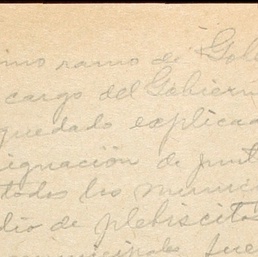 imo ramo de Gob
cargo del Gobiern
quedado explica
signación de
todos los munici
dio de plebiscitos
municipales fue